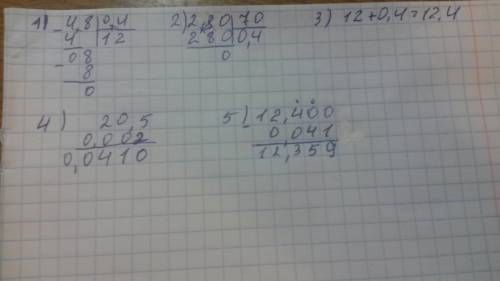 1) 4,8 | 0,4 2) 2,80 | 70 3) 12 + 0,4 = 12,4
- 4 | 12 - 280 | 0,4
08 0
- 8
0
4) 20,5 5) 12,400
0,002 - 0,041
0,0410 12,359